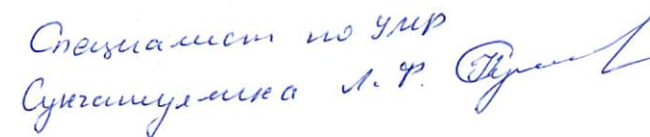 Специалист по УМР
Сунчашуглиева Л. Ф.